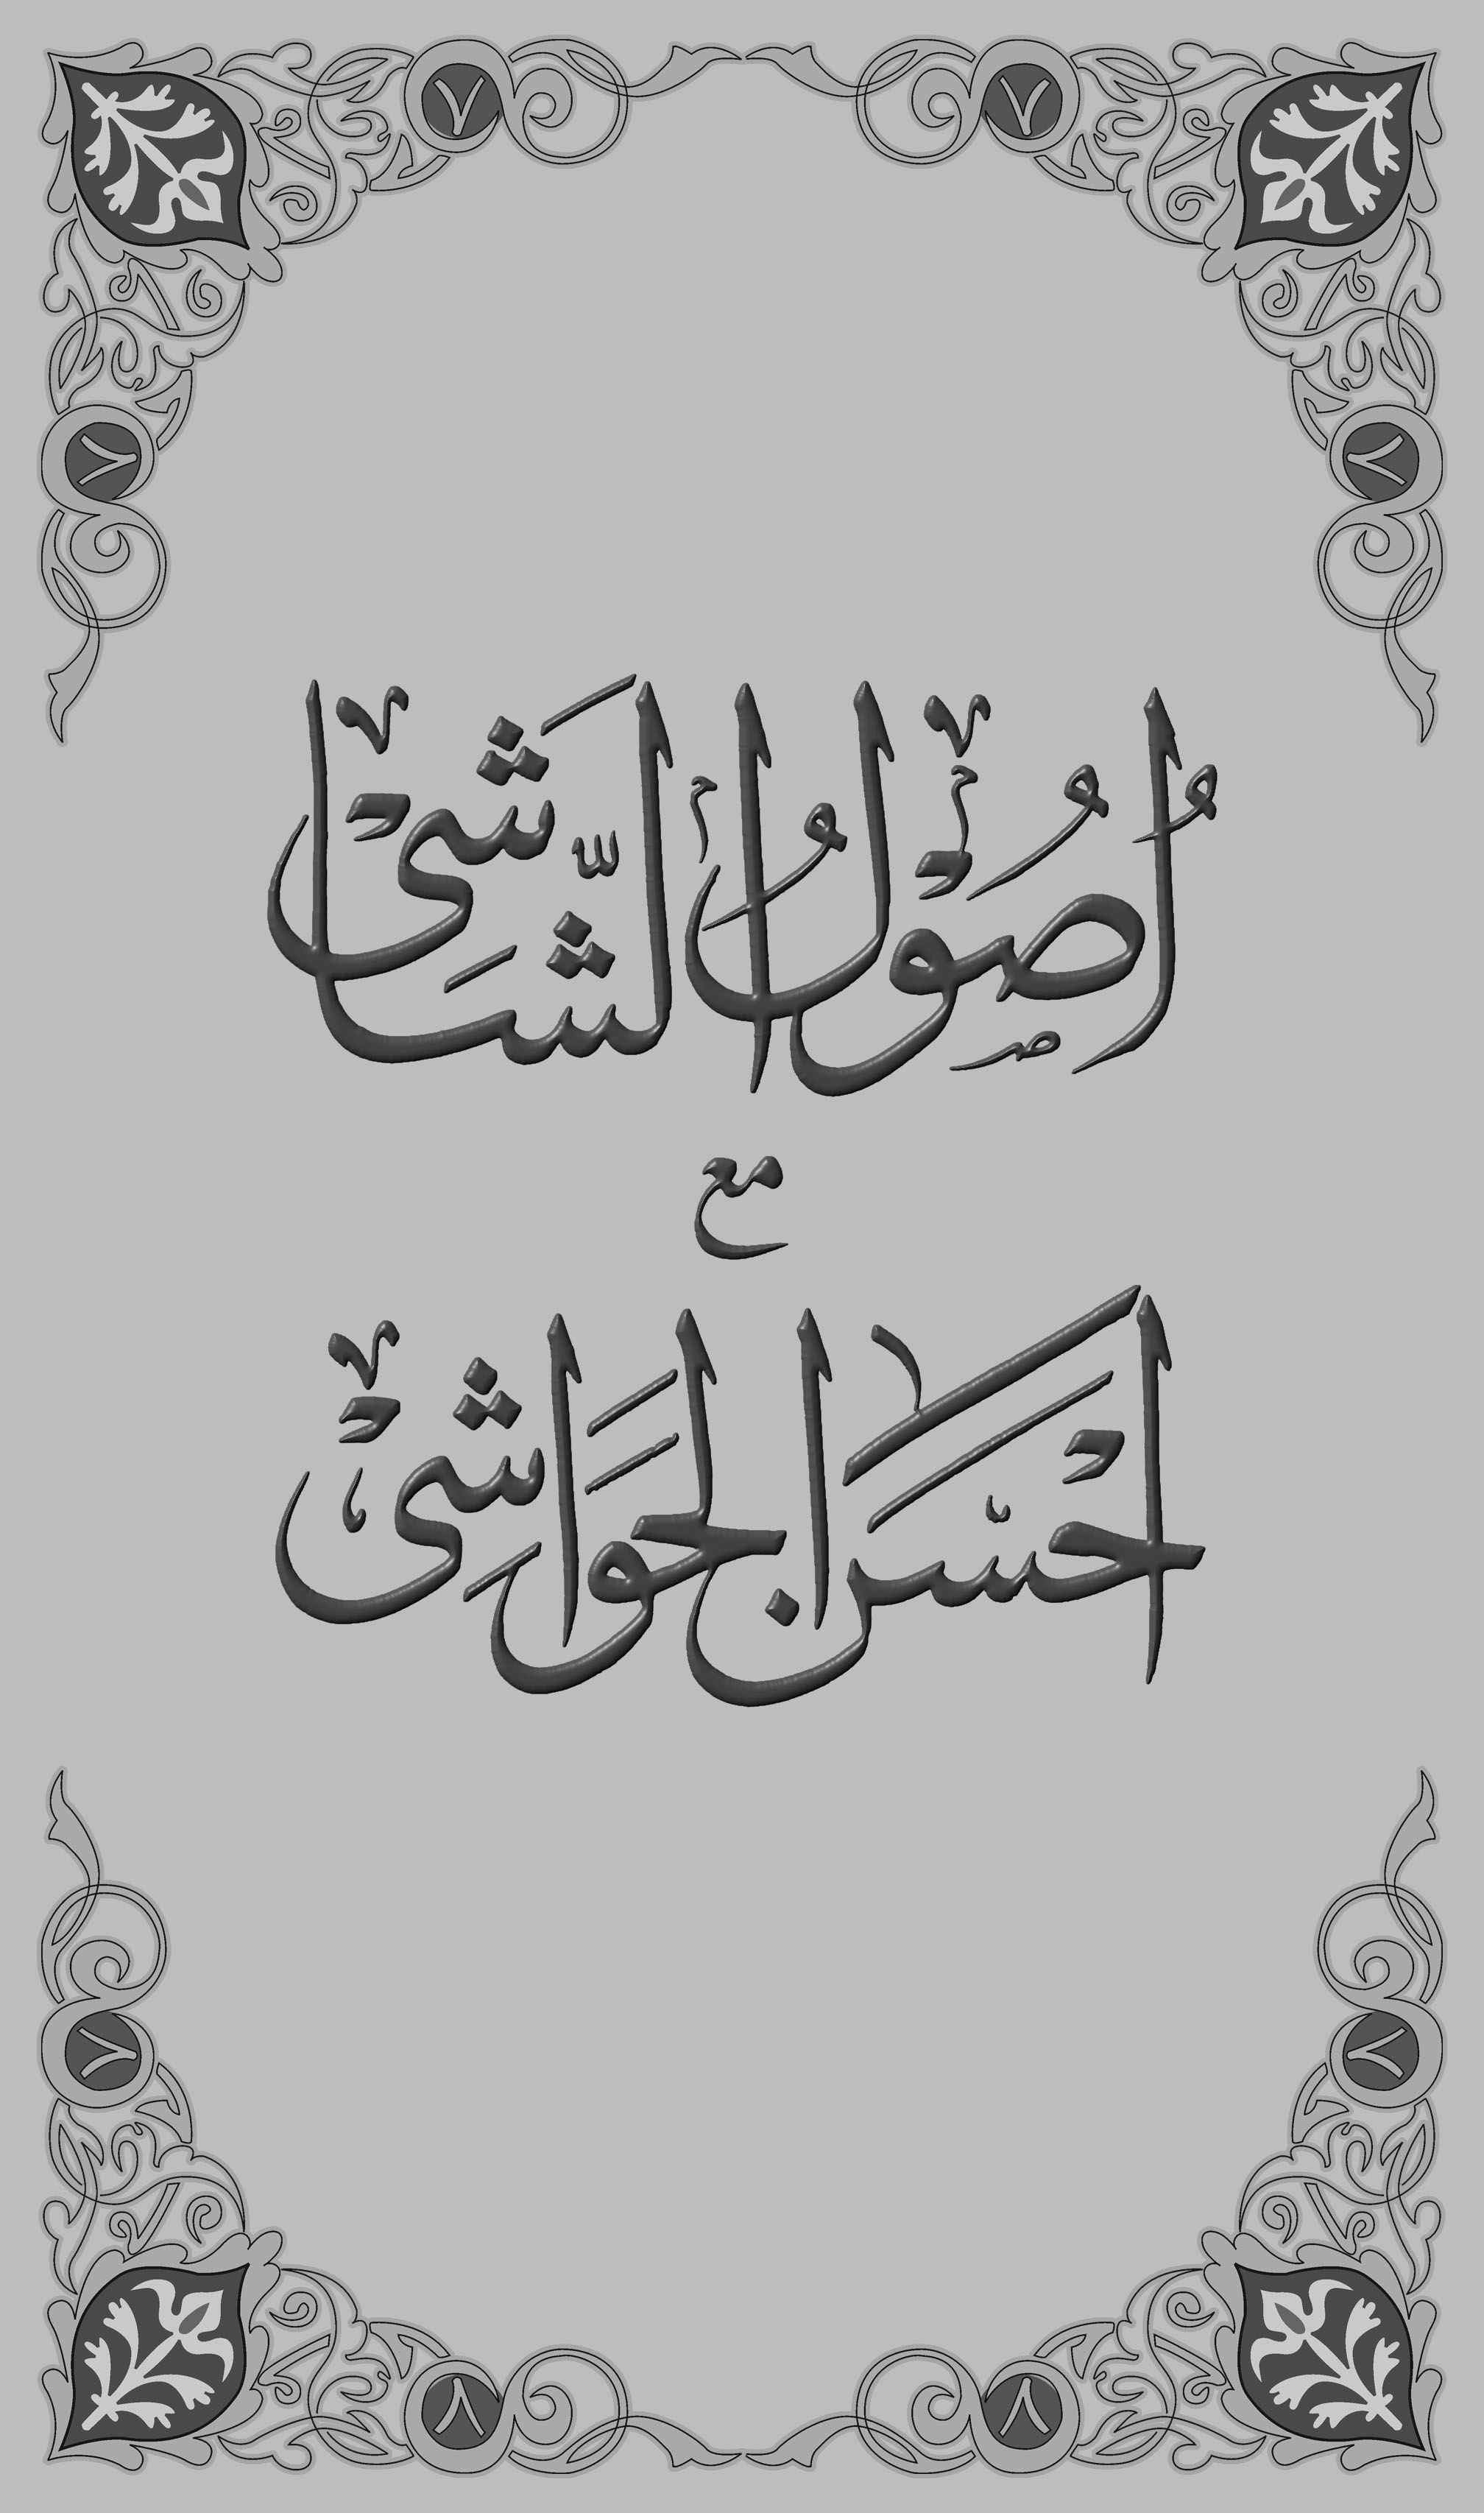 اُصُوْلُ الشَّاشِیْ
مع
اَحْسَنُ الْحَوَاشِیْ